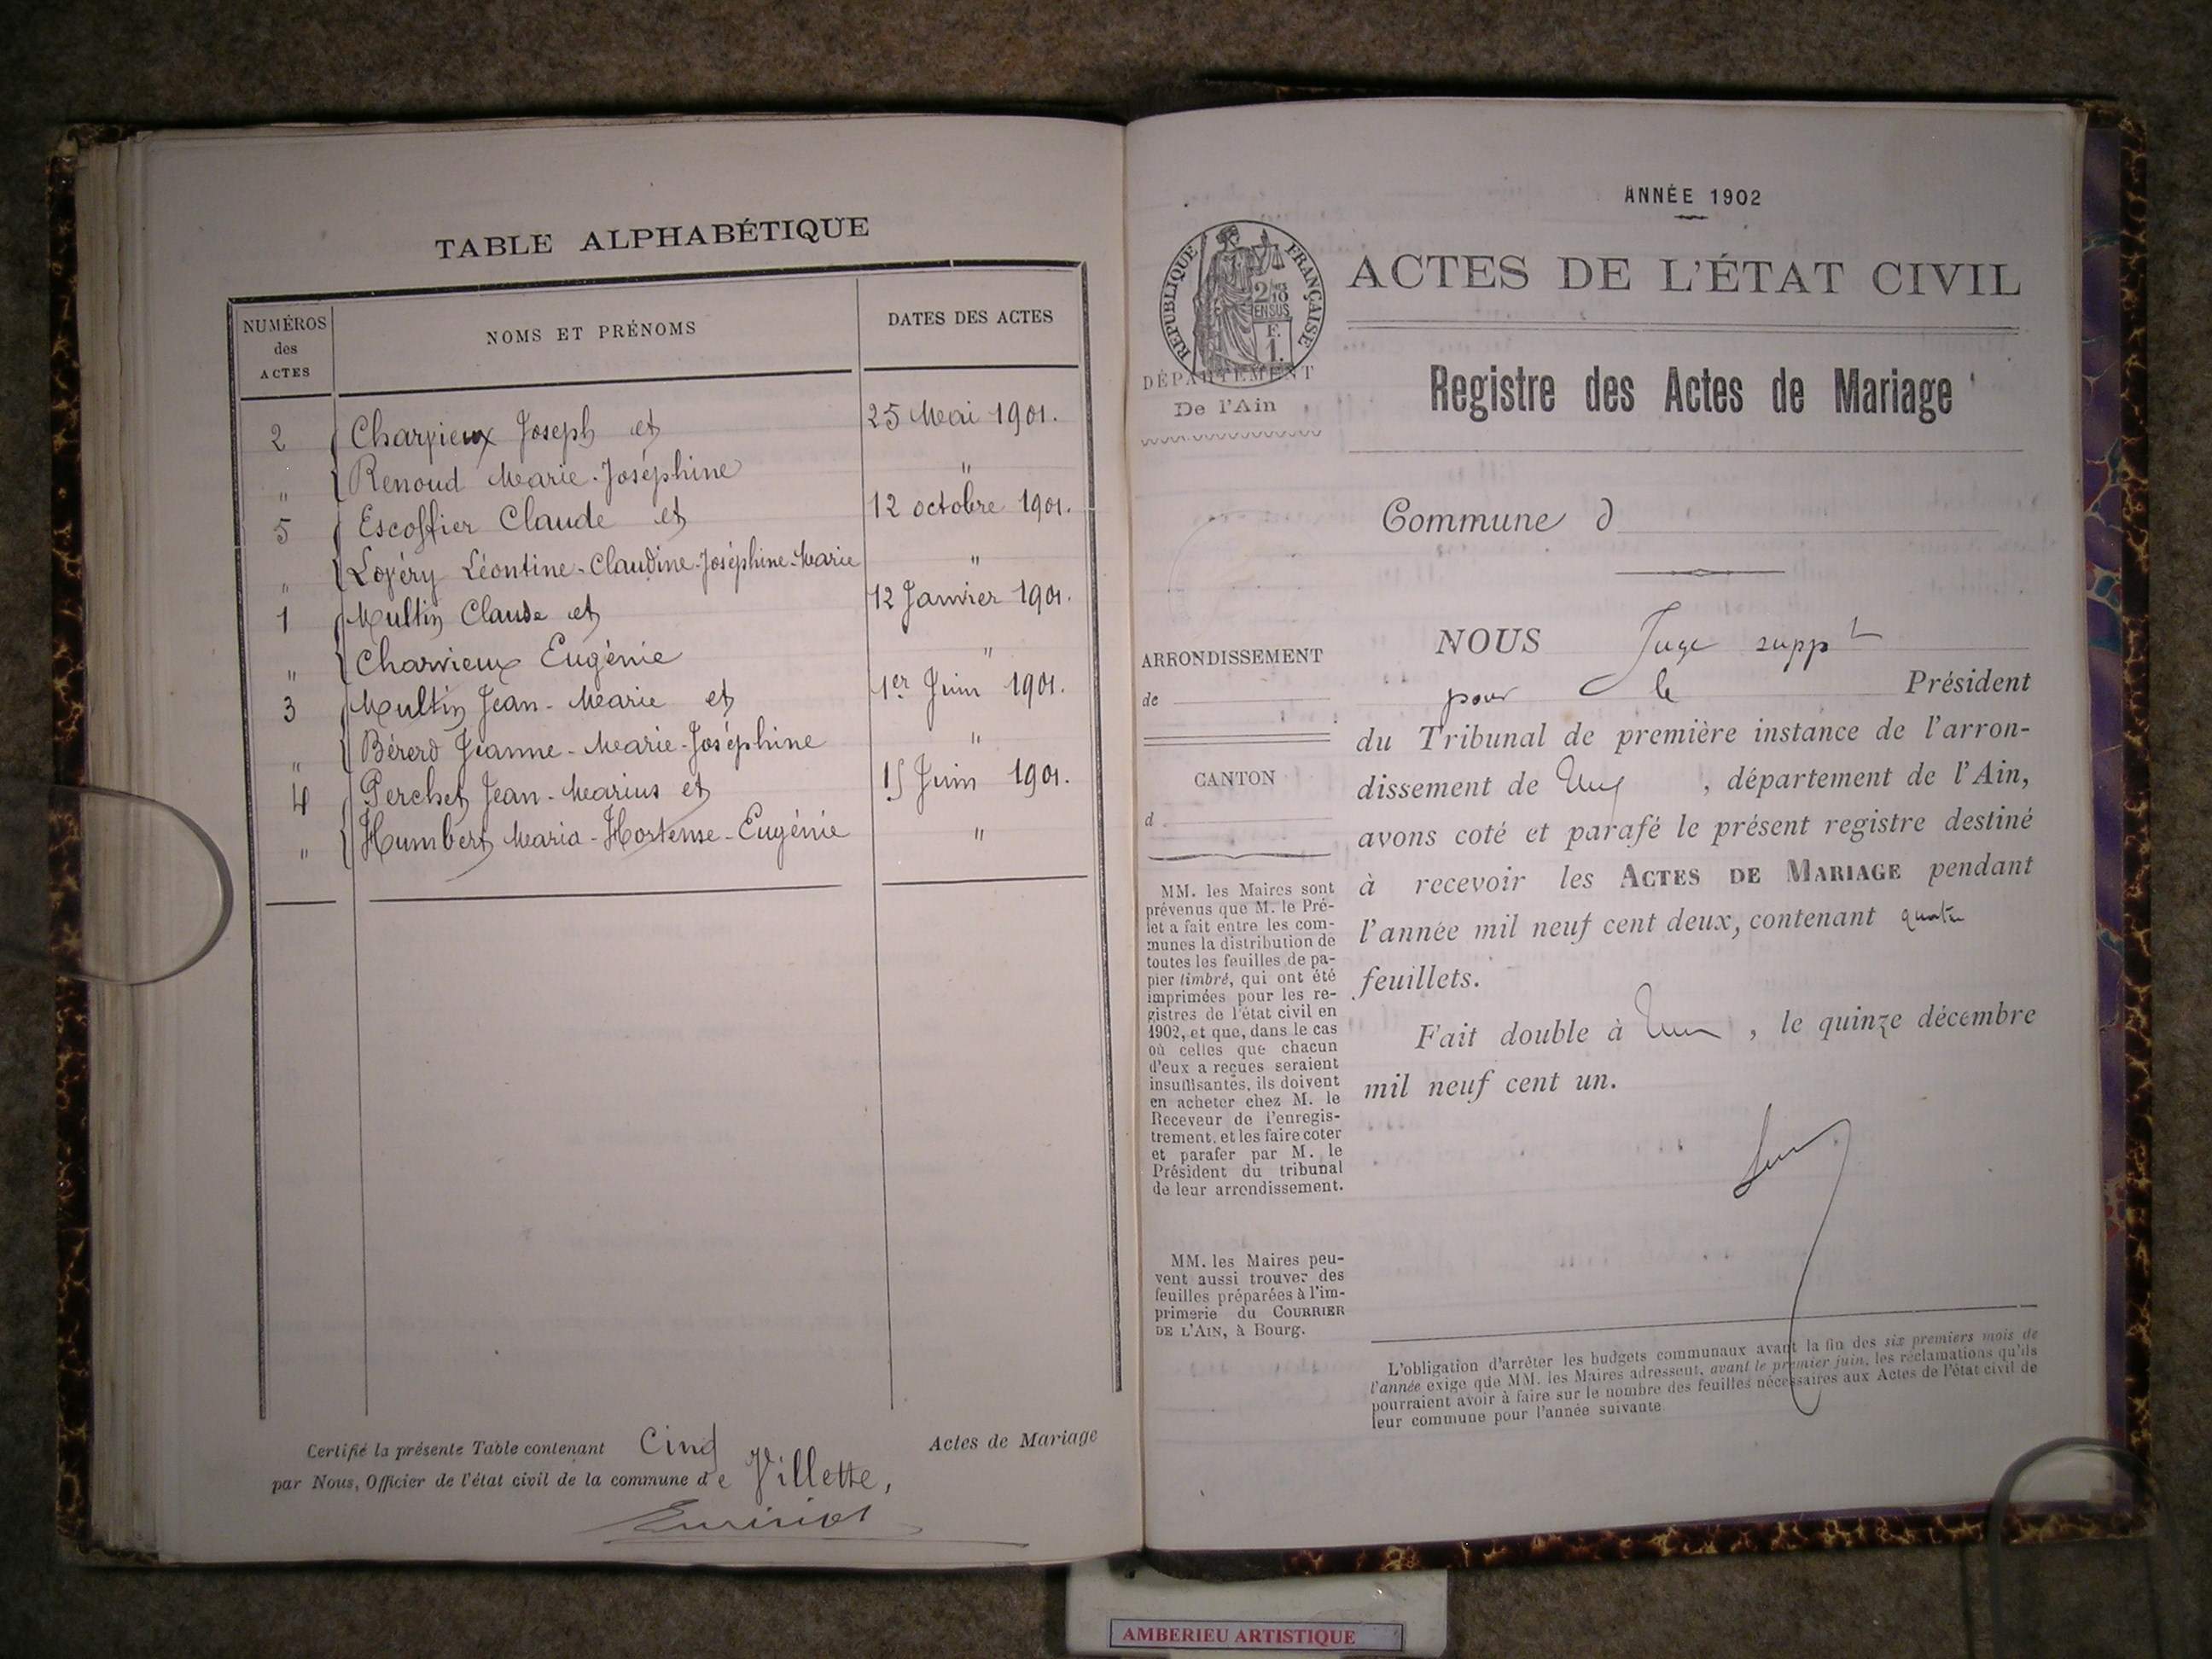 TABLE ALPHABÉTIQUE
NUMÉROS
des
ACTES
NOMS ET PRÉNOMS
DATES DES ACTES
2 Charpieux Joseph et 25 Mai 1901.
" Renoud Marie-Joséphine "
5 Escoffier Claude et 12 octobre 1901.
" Léontine-Claudine-Joséphine-Marie "
1 Multin Claude et 12 Janvier 1901.
" Eugénie "
3 Multin Jean-Marie et 1er Juin 1901.
" Bérerd Jeanne-Marie-Joséphine "
4 Perchet Jean-Marius et 15 Juin 1901.
" Humbert Maria-Hortense-Eugénie "
Certifié la présente Table contenant Cinq Actes de Mariage
par Nous, Officier de l'état civil de la commune de Villette,
ANNÉE 1902
RÉPUBLIQUE FRANÇAISE
2/10
EN SUS
F.
1.
ACTES DE L'ÉTAT CIVIL
DÉPARTEMENT
De l'Ain
Registre des Actes de Mariage
Commune d
ARRONDISSEMENT
de
CANTON
d
MM. les Maires sont
prévenus que M. le Pré-
fet a fait entre les com-
munes la distribution de
toutes les feuilles de pa-
pier timbré, qui ont été
imprimées pour les re-
gistres de l'état civil en
1902, et que, dans le cas
où celles que chacun
d'eux a reçues seraient
insuffisantes, ils doivent
en acheter chez M. le
Receveur de l'enregis-
trement, et les faire coter
et parafer par M. le
Président du tribunal
de leur arrondissement.
MM. les Maires peu-
vent aussi trouver des
feuilles préparées à l'im-
primerie du COURRIER
DE L'AIN, à Bourg.
NOUS Juge suppt
pour le Président
du Tribunal de première instance de l'arron-
dissement de , département de l'Ain,
avons coté et parafé le présent registre destiné
à recevoir les ACTES DE MARIAGE pendant
l'année mil neuf cent deux, contenant quatre
feuillets.
Fait double à , le quinze décembre
mil neuf cent un.
L'obligation d'arrêter les budgets communaux avant la fin des six premiers mois de
l'année exige que MM. les Maires adressent, avant le premier juin, les réclamations qu'ils
pourraient avoir à faire sur le nombre des feuilles nécessaires aux Actes de l'état civil de
leur commune pour l'année suivante
AMBERIEU ARTISTIQUE